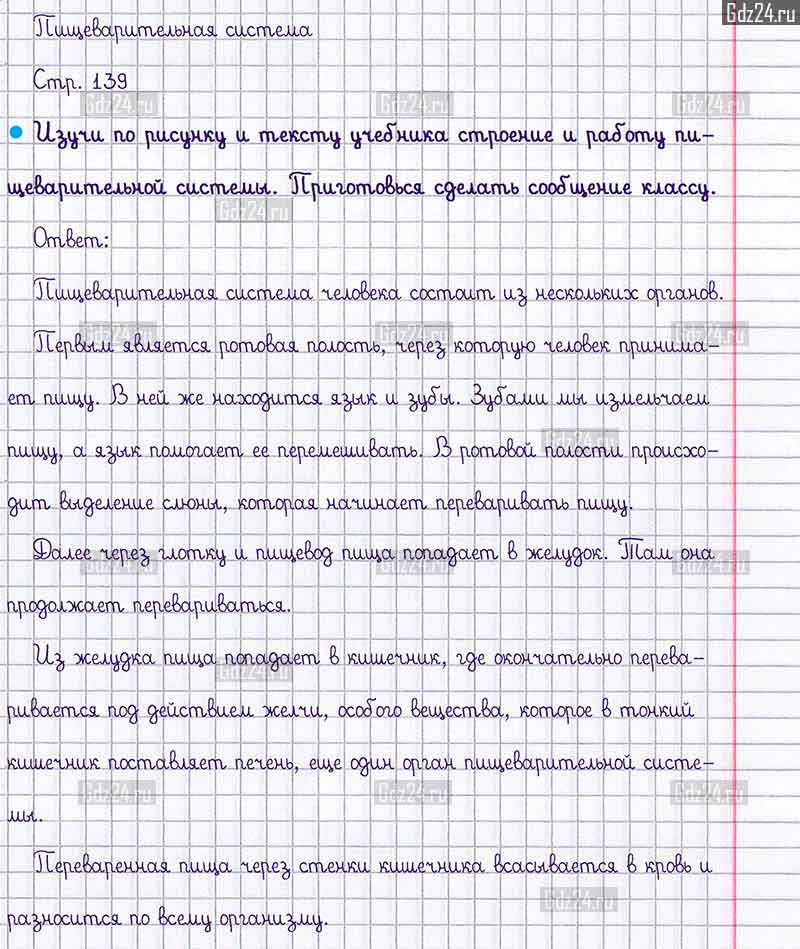 Gdz24.ru
Пищеварительная система
Стр. 139
Gdz24.ru Gdz24.ru Gdz24.ru
Изучи по рисунку и тексту учебника строение и работу пи-
щеварительной системы. Приготовься сделать сообщение классу.
Gdz24.ru
Ответ:
Пищеварительная система человека состоит из нескольких органов.
Gdz24.ru Gdz24.ru Gdz24.ru
Первым является ротовая полость, через которую человек принима-
ет пищу. В ней же находится язык и зубы. Зубами мы измельчаем
Gdz24.ru
пищу, а язык помогает ее перемешивать. В ротовой полости происхо-
дит выделение слюны, которая начинает переваривать пищу.
Далее через глотку и пищевод пища попадает в желудок. Там она
Gdz24.ru Gdz24.ru Gdz24.ru
продолжает перевариваться.
Из желудка пища попадает в кишечник, где окончательно перева-
Gdz24.ru
ривается под действием желчи, особого вещества, которое в тонкий
кишечник поставляет печень, еще один орган пищеварительной систе-
Gdz24.ru Gdz24.ru Gdz24.ru
мы.
Переваренная пища через стенки кишечника всасывается в кровь и
Gdz24.ru
разносится по всему организму.